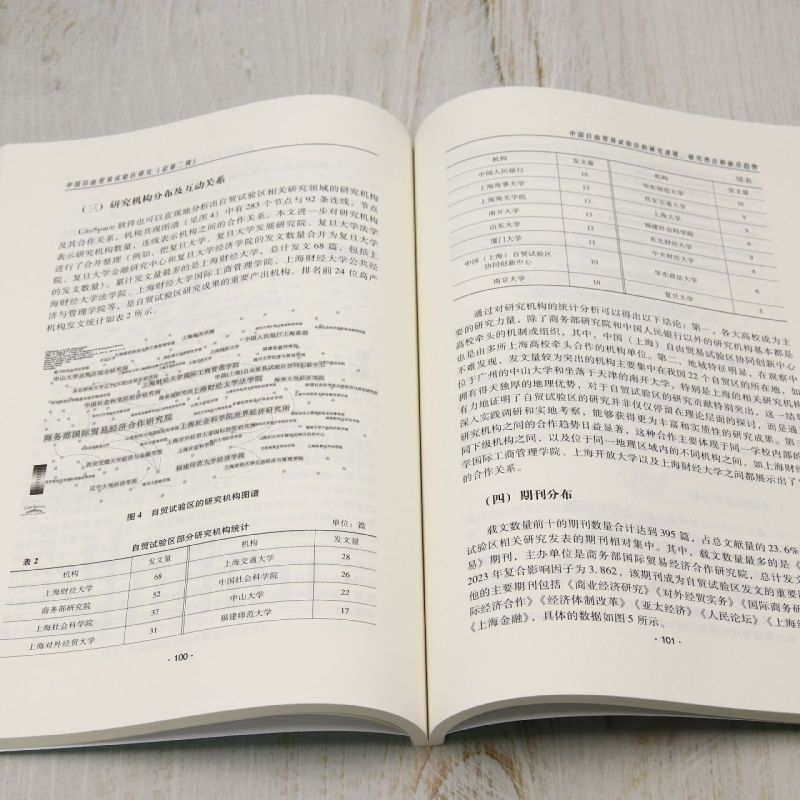 中国自由贸易试验区研究（总第二辑）
（三）研究机构分布及互动关系
CiteSpace 软件也可以直观地分析出自贸试验区相关研究领域的研究机构
及其合作关系。机构共现图谱（见图4）中有283个节点与92条连线，节点
表示研究机构数量，连线表示机构之间的合作关系。本文进一步对研究机构
进行了合并整理（例如，把复旦大学、复旦大学发展研究院、复旦大学法学
院、复旦大学金融研究中心和复旦大学经济学院的发文数量合并为复旦大学
的发文数量）。累计发文量最多的是上海财经大学，总计发文68篇，包括上
海财经大学法学院、上海财经大学国际工商管理学院、上海财经大学公共经
济与管理学院等，是自贸试验区研究成果的重要产出机构。排名前24位高产
机构发文统计如表2所示。
上海海关学院
中国人民银行上海总部
上海财经大学国际工商管理学院
上海财经大学法学院
商务部国际贸易经济合作研究院
上海社会科学院世界经济研究所
西安交通大学经济与金融学院
福建师范大学经济学院
辽宁大学经济学院
图4 自贸试验区的研究机构图谱
表2
自贸试验区部分研究机构统计
单位：篇
机构 发文量 机构 发文量
上海财经大学 68 上海交通大学 28
商务部研究院 52 中国社会科学院 26
上海社会科学院 37 中山大学 22
上海对外经贸大学 31 福建师范大学 17
· 100 ·
中国自由贸易试验区的研究进展、研究热点和前沿趋势
续表
机构 发文量 机构 发文量
中国人民银行 16 华东师范大学 10
上海海事大学 13 西安交通大学 9
上海海关学院 13 上海大学 9
南开大学 13 福建社会科学院 9
山东大学 12 东北财经大学 9
厦门大学 11 中央财经大学 8
中国（上海）自贸试验区
协同创新中心 10 华东政法大学 6
南京大学 10 复旦大学 5
通过对研究机构的统计分析可以得出以下结论：第一，各大高校成为主
要的研究力量，除了商务部研究院和中国人民银行以外的研究机构基本都是
高校牵头的机制或组织，其中，中国（上海）自由贸易试验区协同创新中心
也是由多所上海高校牵头合作的机构单位。第二，地域特征明显，在观察中
不难发现，发文量较为突出的机构主要集中在我国22个自贸区的所在地，如
位于广州的中山大学和坐落于天津的南开大学，特别是上海的相关研究机构
拥有得天独厚的地理优势，对于自贸试验区的研究贡献特别突出，这一结果
有力地证明了自贸试验区的研究并非仅仅停留在理论层面的探讨，而是通
深入实践调研和实地考察，能够获得更为丰富和实质性的研究成果。第三
研究机构之间的合作趋势日益显著，这种合作主要体现于同一学校内部的
同下级机构之间，以及位于同一地理区域内的不同机构之间，如上海财经
学国际工商管理学院、上海开放大学以及上海财经大学之间都展示出了
的合作关系。
（四）期刊分布
载文数量前十的期刊数量合计达到395篇，占总文献量的23.6%
试验区相关研究发表的期刊相对集中。其中，载文数量最多的是《
易》期刊，主办单位是商务部国际贸易经济合作研究院，总计发文
2023年复合影响因子为3.862，该期刊成为自贸试验区发文的重要
他的主要期刊包括《商业经济研究》《对外经贸实务》《国际商务研
际经济合作》《经济体制改革》《亚太经济》《人民论坛》《上海经
《上海金融》，具体的数据如图5所示。
· 101 ·